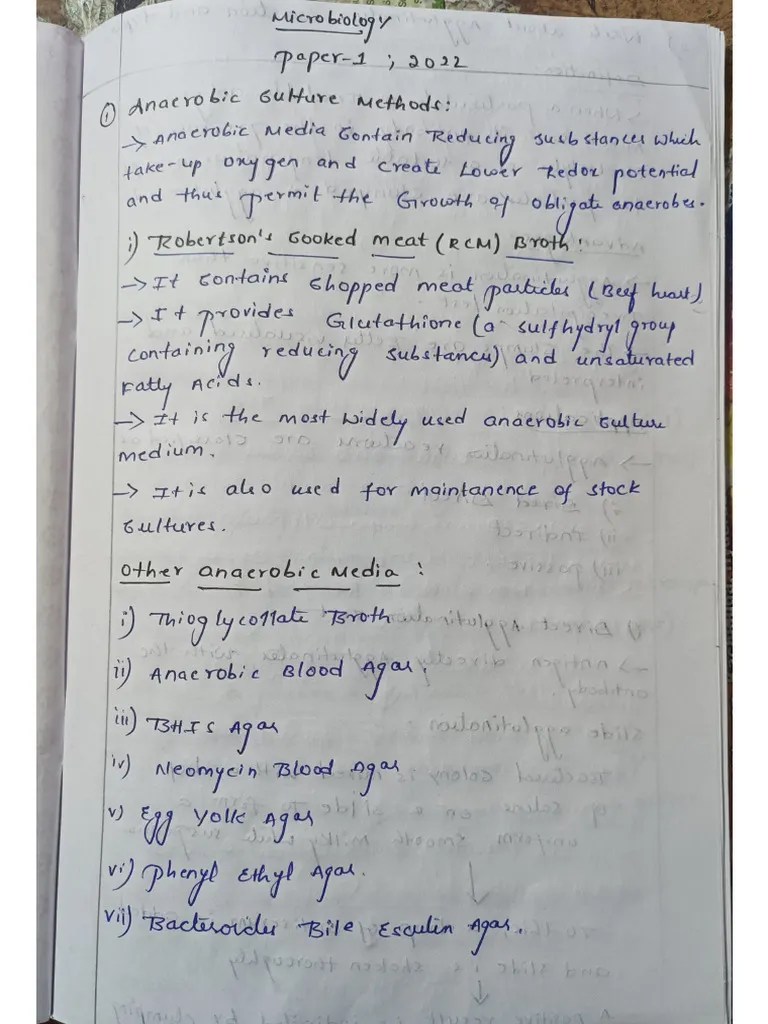 Microbiology
paper-1 ; 2022
① Anaerobic Culture Methods:
→ Anaerobic Media Contain Reducing substances which
take-up oxygen and create Lower Redox potential
and thus permit the Growth of obligate anaerobes.
i) Robertson's Cooked meat (RCM) Broth:
→ It contains Chopped meat particles (Beef heart)
→ It provides Glutathione (a sulfhydryl group
containing reducing substances) and unsaturated
Fatty Acids.
→ It is the most widely used anaerobic culture
medium.
→ It is also used for maintanence of stock
cultures.
Other anaerobic Media :
i) Thioglycollate Broth
ii) Anaerobic Blood Agar.
iii) BHIS Agar
iv) Neomycin Blood Agar
v) Egg Yolk Agar
vi) phenyl Ethyl Agar.
vii) Bacteroides Bile Esculin Agar.